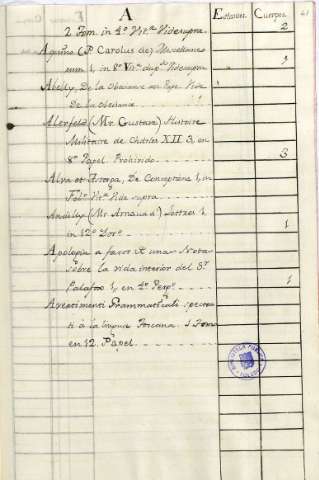 A
Estanon. Cuerpos.
2 Tom. in 4º Vit.ª Vide supra. 2
Aquino (P. Carolus de)
1, in 8º Vit.ª dup. Vide supra 1
Abelly, De la Obeisance au Pape Vide
De la obeisance
Alerfeld (Mr. Gustave) Histoire
Militaire de Charles XII 3, en
8º Papel Prohivido. 3
Alva et Astorga, De Conceptione 1, in
Fol.º Vit.ª Vide supra
Andilly (Mr. Arnaud d') Lettres 1
in 12º 1
Apologia a favor de una Nota
sobre la vida interior del Sr.
Palafox 1, en 4º Perg.º 1
Avertimenti Grammaticali
à la lingua Toscana. 1 Tom.
en 12. Papel